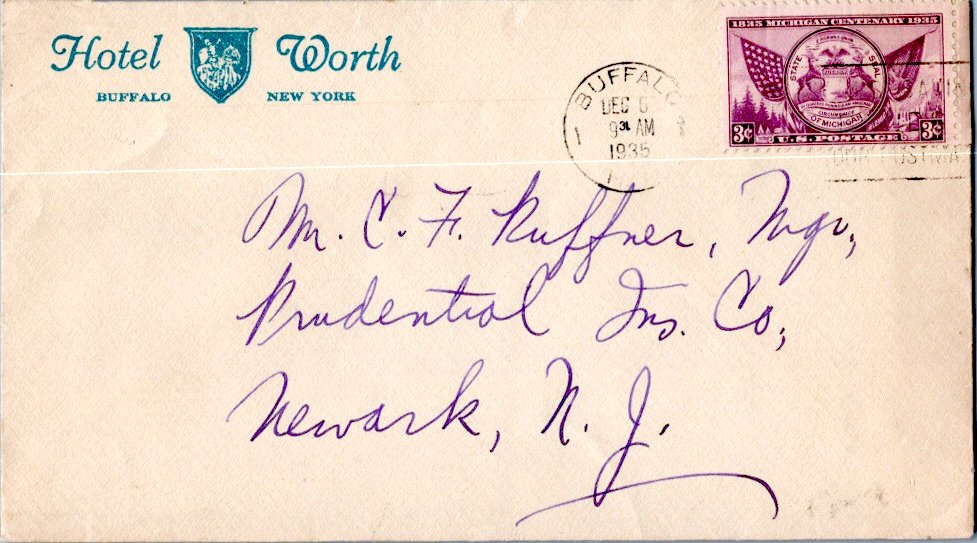 Hotel Worth
BUFFALO NEW YORK
1835 MICHIGAN CENTENARY 1935
STATE SEAL
OF MICHIGAN
3¢ 3¢
U.S. POSTAGE
BUFFALO
1
DEC
9 AM
1935
Mr. C. F. Ruffner, Mgr,
Prudential Ins. Co,
Newark, N. J.